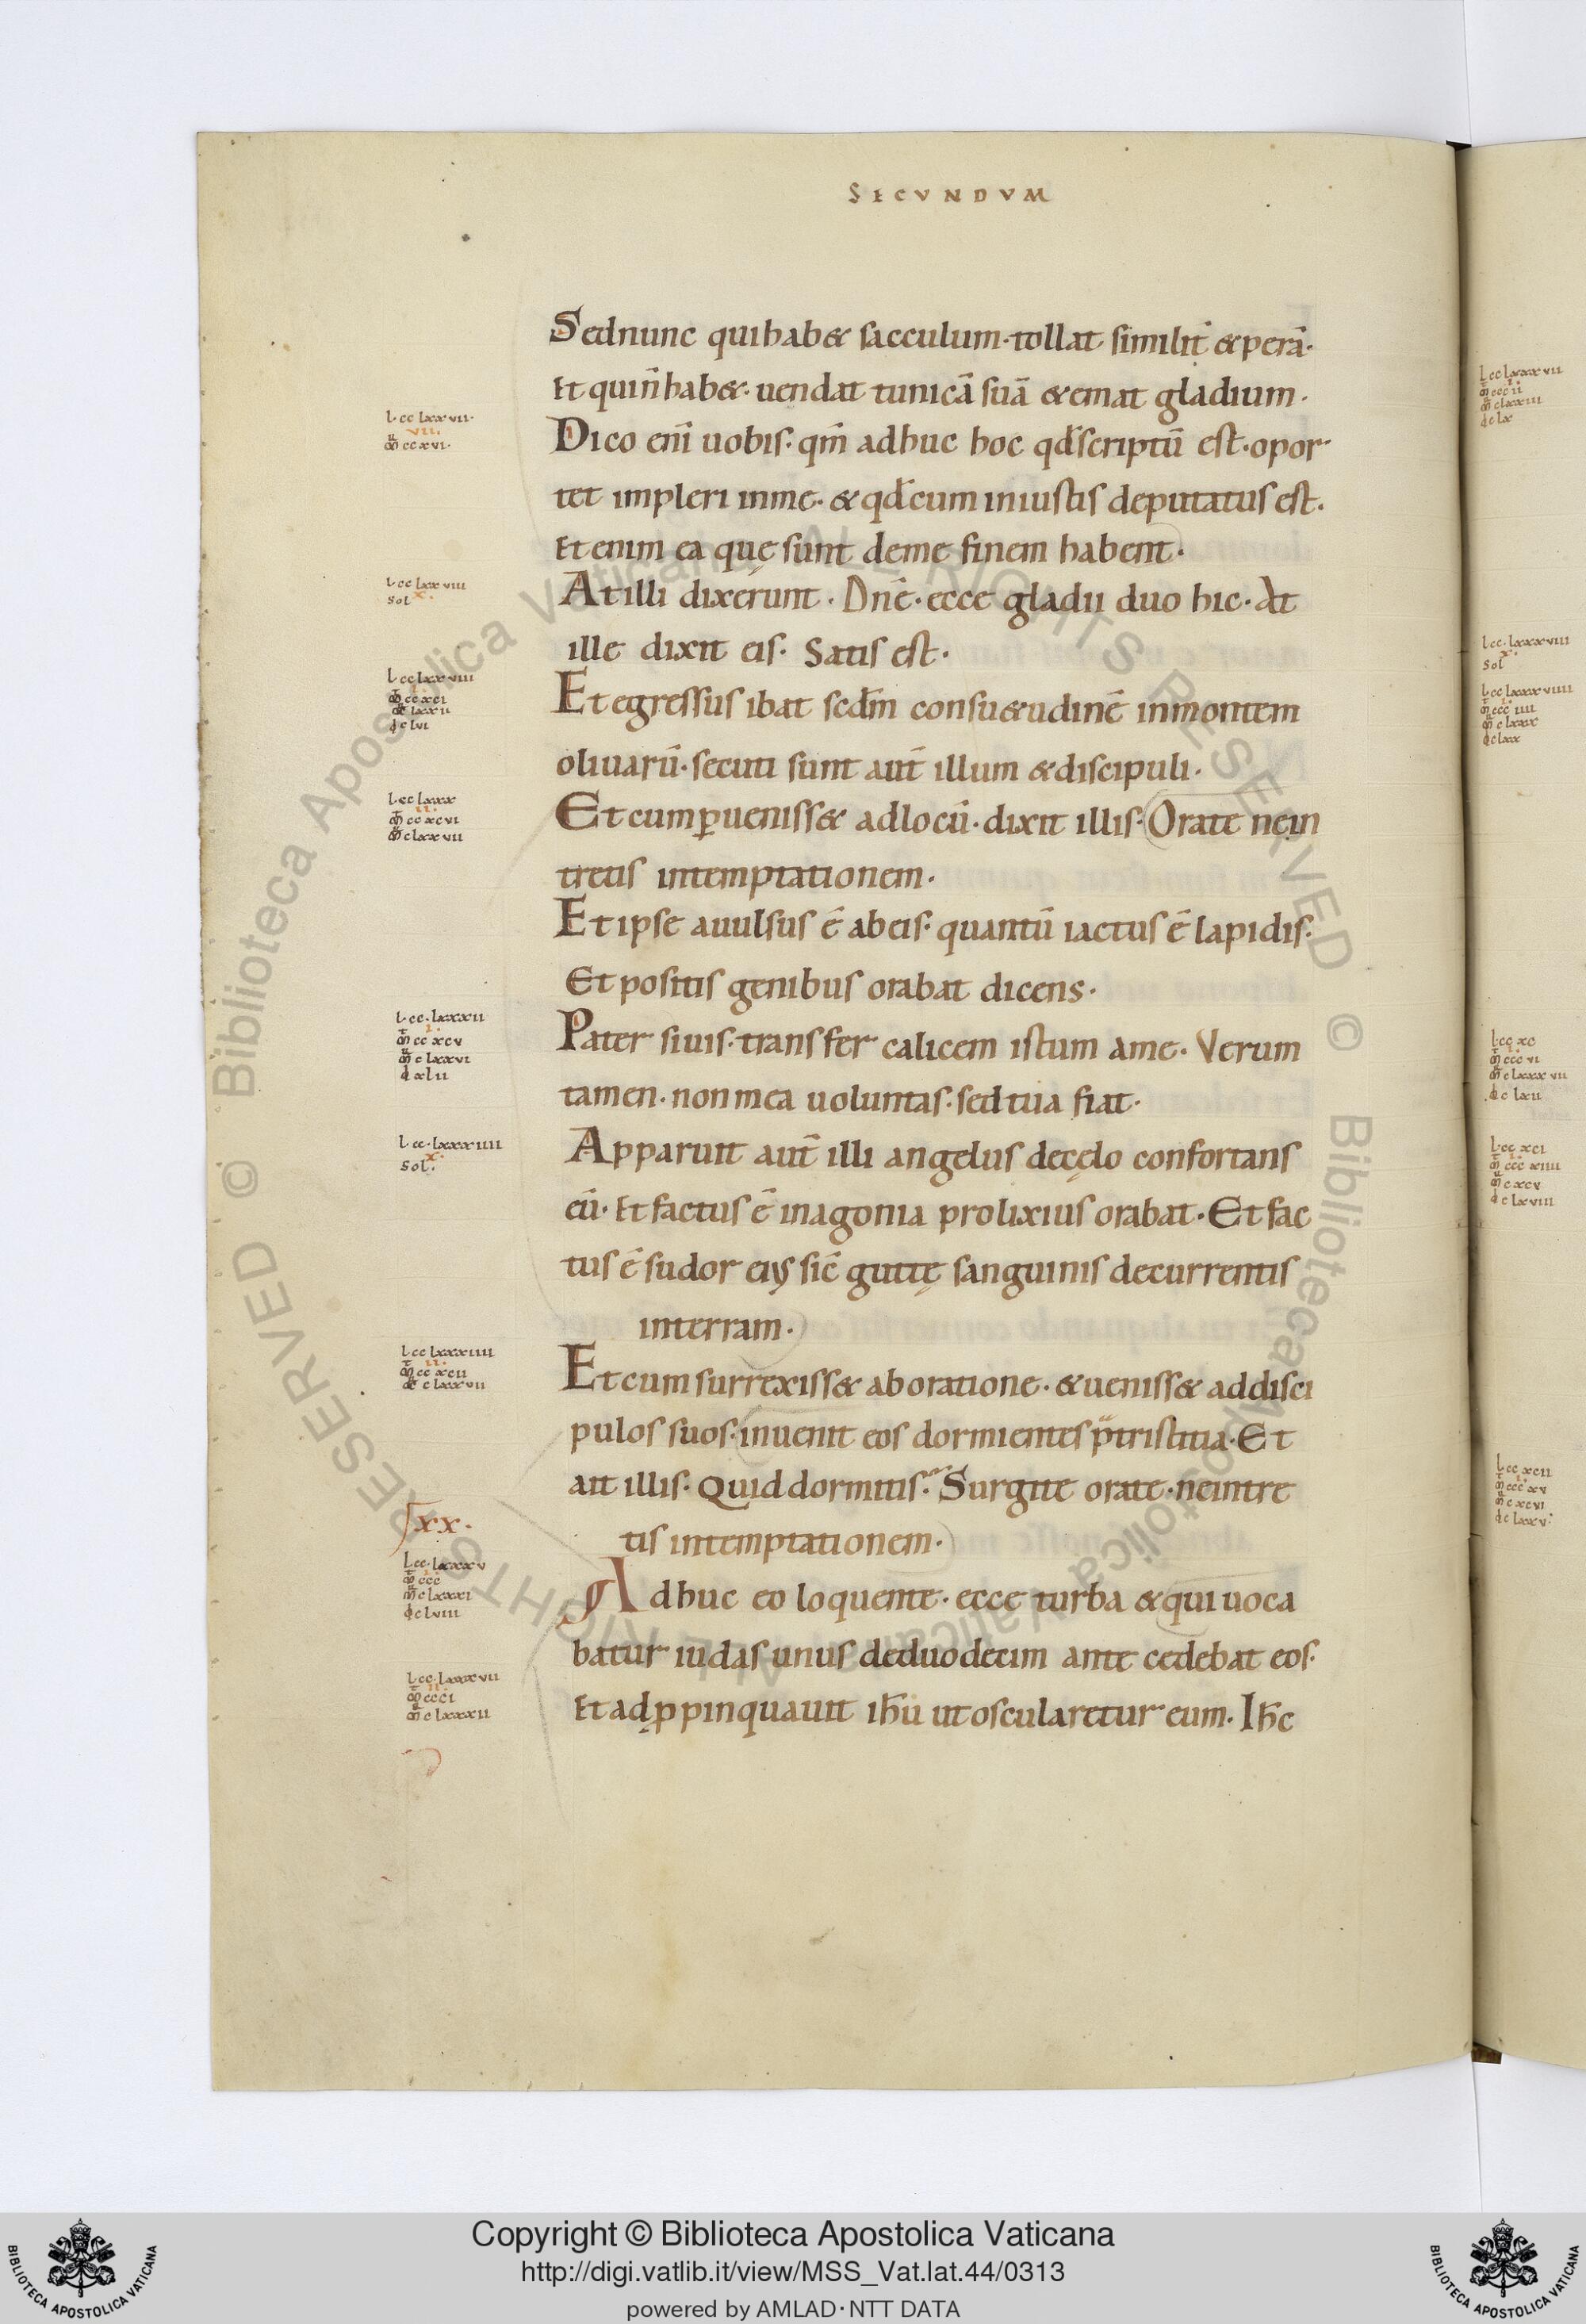 SECVNDVM
Sed nunc qui hab& sacculum· tollat similit̄ & perā·
Et qui n̄ hab&· uendat tunicā suā & emat gladium·
L cc lxxvii·
vii·
m̄ ccxvi·
Dico eni̅ uobis· qm̄ adhuc hoc qd̄ scriptū est· opor
tet impleri in me· & qd̄ cum iniustis deputatus est·
Et enim ea quę sunt de me finem habent·
L cc lxxviii
x·
sol
At illi dixerunt· Dn̄e· ecce gladii duo hic· At
ille dixit eis· Satis est·
L cc lxxviiii
Et egressus ibat scd̄m consu&udinē in montem
oliuarū· secuti sunt aut̄ illum & discipuli·
L cc lxxx
ii·
m̄ cc xcvi
m̄ c lxxvii
Et cum ꝑueniss& ad locū· dixit illis· Orate ne in
tretis in temptationem·
Et ipse auulsus ē ab eis· quantū iactus ē lapidis·
Et positis genibus orabat dicens·
L cc·lxxxii
i·
m̄ cc xcv
m̄ c lxxvi
Pater si uis· transfer calicem istum a me· Verum
tamen· non mea uoluntas· sed tua fiat·
L cc·lxxxiiii
x·
sol·
Apparuit aut̄ illi angelus de cęlo confortans
eū· Et factus ē in agonia prolixius orabat· Et fac
tus ē sudor eiꝰ sic̄ guttę sanguinis decurrentis
in terram·
L cc lxxxiiii
ii·
m̄ cc xcii
Et cum surrexiss& ab oratione· & ueniss& ad disci
pulos suos· inuenit eos dormientes p̄ tristitia· Et
ait illis· Quid dormitis· Surgite orate· ne intre
tis in temptationem·
xx·
L cc·lxxxv
i·
m̄ ccc
m̄ c lxxxi
Adhuc eo loquente· ecce turba & qui uoca
batur iudas unus de duodecim antecedebat eos·
L cc·lxxxvii
ii·
m̄ ccci
m̄ c lxxxii
Et adꝓpinquauit ih̄u ut oscularetur eum· Ih̄c
© Biblioteca Apostolica Vaticana ALL RIGHTS RESERVED © Biblioteca Apostolica Vaticana ALL RIGHTS RESERVED
Copyright © Biblioteca Apostolica Vaticana
http://digi.vatlib.it/view/MSS_Vat.lat.44/0313
powered by AMLAD·NTT DATA
BIBLIOTECA APOSTOLICA VATICANA
BIBLIOTECA APOSTOLICA VATICANA